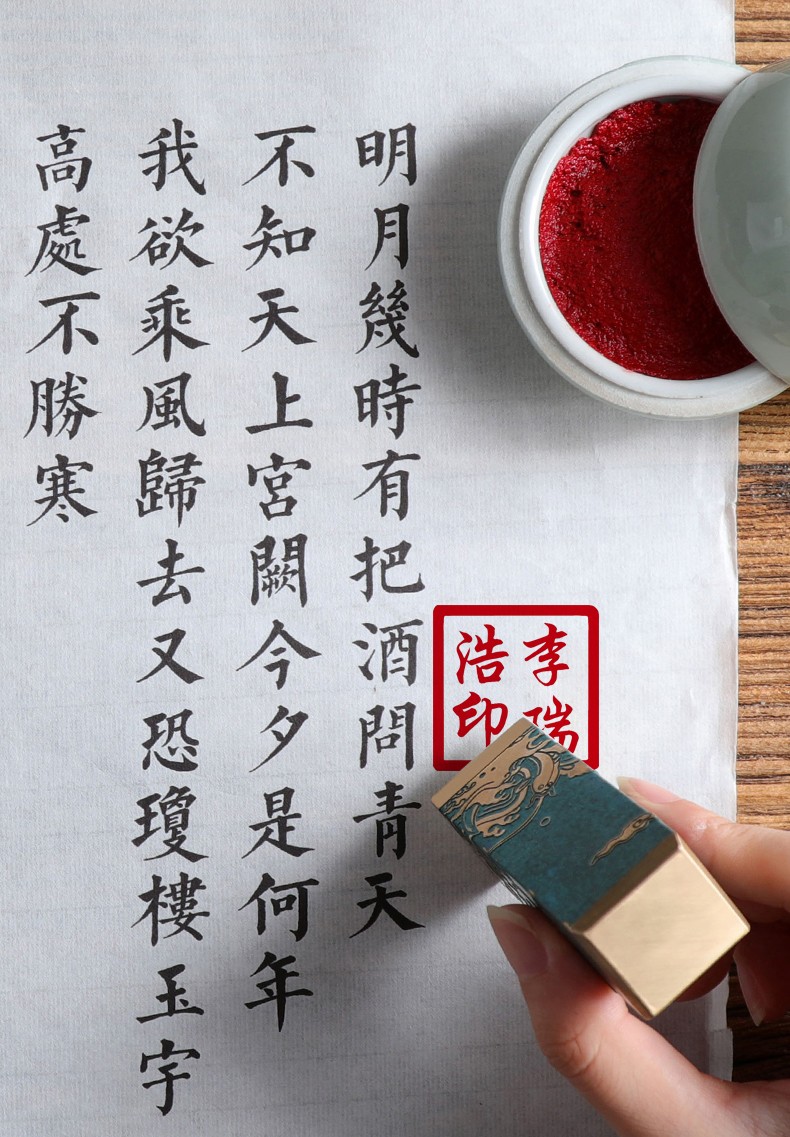 明月幾時有把酒問青天
不知天上宮闕今夕是何年
我欲乘風歸去又恐瓊樓玉宇
高處不勝寒
李瑞
浩印